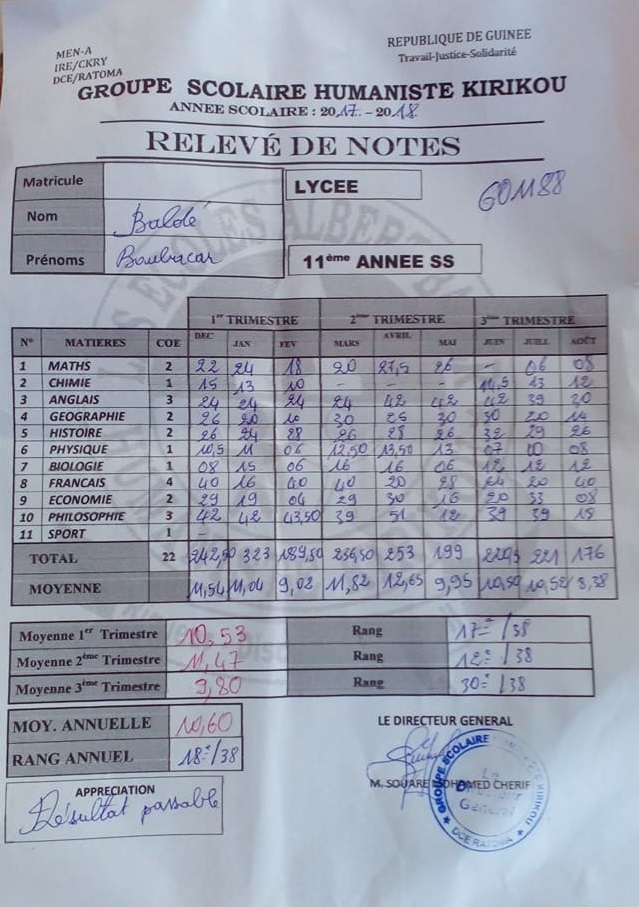 MEN-A
IRE/CKRY
DCE/RATOMA
REPUBLIQUE DE GUINEE
Travail-Justice-Solidarité
GROUPE SCOLAIRE HUMANISTE KIRIKOU
ANNEE SCOLAIRE : 2017 - 2018
RELEVÉ DE NOTES
Matricule
LYCEE
Nom Baldé
Prénoms Boubacar
11ème ANNEE SS
1er TRIMESTRE 2ème TRIMESTRE 3ème TRIMESTRE
N° MATIERES COE DEC JAN FEV MARS AVRIL MAI JUIN JUILL AOÛT
1 MATHS 2 22 24 18 20 27,5 26 - 06 08
2 CHIMIE 1 15 13 10 - - - 14,5 13 12
3 ANGLAIS 3 24 24 24 24 42 42 42 39 30
4 GEOGRAPHIE 2 26 20 10 30 25 30 30 20 14
5 HISTOIRE 2 26 24 28 26 28 26 32 29 26
6 PHYSIQUE 1 10,5 11 06 12,50 13,50 13 07 00 08
7 BIOLOGIE 1 08 15 06 16 16 06 12 12 12
8 FRANCAIS 4 40 16 40 40 20 28 24 20 40
9 ECONOMIE 2 29 19 04 29 30 16 20 33 08
10 PHILOSOPHIE 3 42 42 43,50 39 51 12 39 39 18
11 SPORT 1 -
TOTAL 22 242,50 323 189,50 236,50 253 199 221 176
MOYENNE 11,54 11,04 9,02 11,82 12,65 9,95 10,50 10,52 8,38
Moyenne 1er Trimestre 10,53 Rang 17e/38
Moyenne 2ème Trimestre 11,47 Rang 12e/38
Moyenne 3ème Trimestre 9,80 Rang 30e/38
MOY. ANNUELLE 10,60
RANG ANNUEL 18e/38
LE DIRECTEUR GENERAL
M. SOUARE MOHOMED CHERIF
APPRECIATION
Résultat passable
GROUPE SCOLAIRE KIRIKOU
Le
Directeur
Général
DCE RATOMA